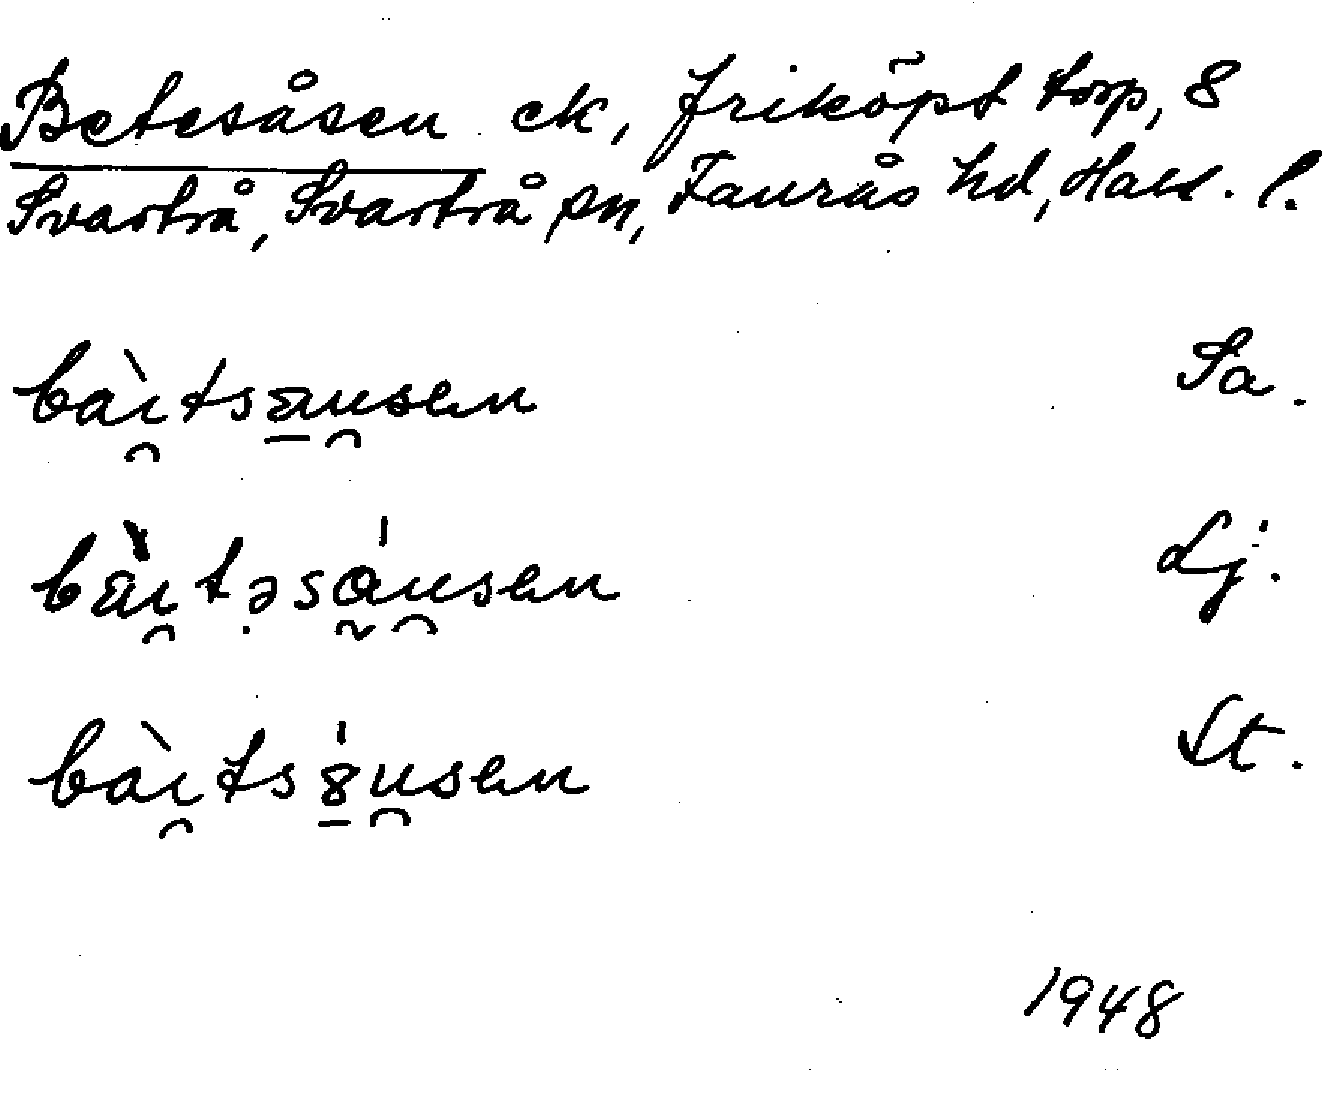 Betesåsen ek, friköpt torp, 8
Svartrå, Svartrå sn, Faurås hd, Hall. l.
bàı̯tsa̱u̯sen Sa.
bàı̯tə̣sa̰̍u̯sen Lj.
bàı̯ts8̱̍u̯sen St.
1948